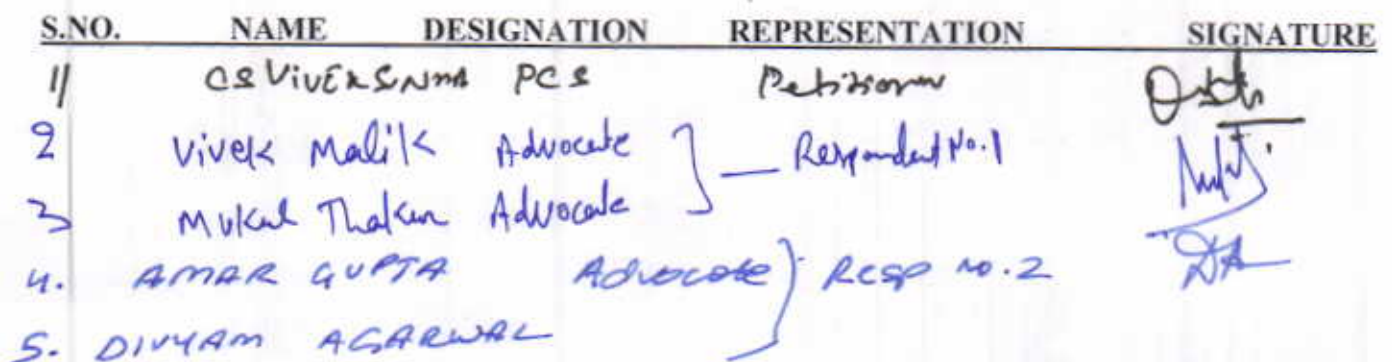 S.NO. NAME DESIGNATION REPRESENTATION SIGNATURE
1/ CS PCS Petitioner
2 Vivek Malik Advocate Respondent No.1
3 Mukul Thakur Advocate
4. AMAR GUPTA Advocate Resp no.2
5. DIVYAM AGARWAL